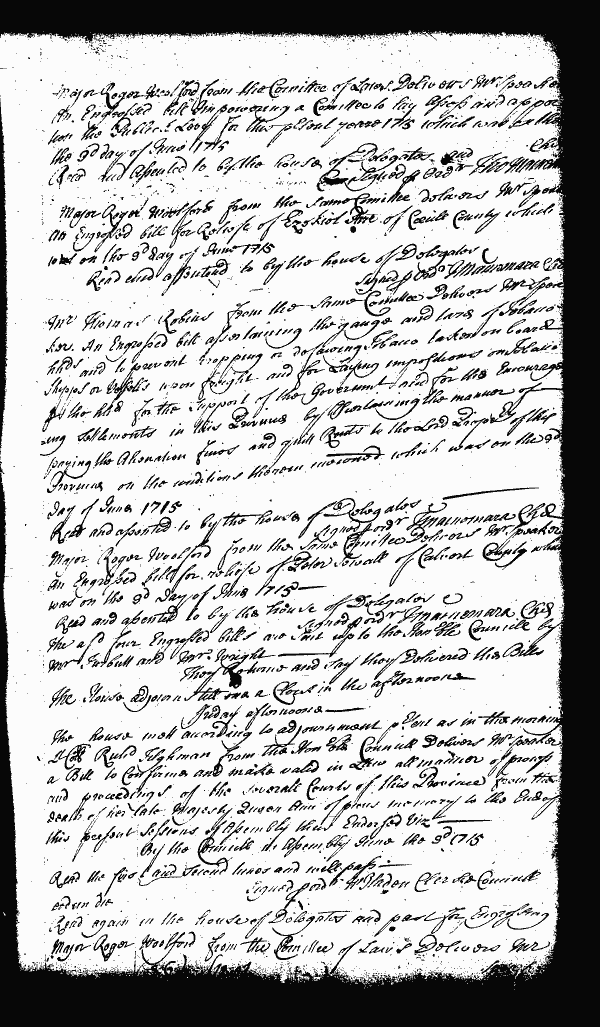 Major Roger Woolford from the Comittee of Laws Delivers Mr Speaker
An Engrossed bill Impowering a Comittee to lay Assess and appor
tion the Publick Levy for this pſent yeare 1715 which was on the
the 3d day of June 1715
Read and assented to by the house of Delegates and
Signed p Ordr Tho Macnemara
Major Roger Woolford from the same Comittee delivers Mr Speaker
An Engrossed bill for Reliefe of Ezekiel of Cecill County which
was on the 3d day of June 1715
Read and assented to by the house of Delegates
Signed p Ordr Tmacnemara Clk
Mr Thomas Robins from the same Comittee Delivers Mr Speaker
An Engrossed bill ascertaining the gauge and tare of Tobacco
hhds and to prevent cropping or defacing Tobacco taken on board
Shipps or Vessels upon freight and for Laying impositions on Tobacco
p the hhd for the Support of the Governmt and for the Encourage
ing Settlements in this Province by Ascertaining the manner of
paying the Alienation fines and quitt Rents to the Lord Propry of this
Province on the conditions therein mentioned which was on the 3d
day of June 1715
Read and assented to by the house of Delegates
Signed p ordr Tmacnemara Clk
Major Roger Woolford from the Same Comittee Delivers Mr Speaker
an Engrossed bill for reliefe of Peter Sewall of Calvert County which
was on the 3d day of June 1715
Read and assented to by the house of Delegates
Signed p ordr Tmacnemara Clk
The afsd four Engrossed bills are sent up to the Honble Councill by
Mr Turbutt and Mr Wright
They Returne and say they Delivered the Bills
The House adjourns till one a Clock in the afternoone
Friday afternoone
The house mett according to adjournment pſent as in the morning
Lt Coll Richd Tilghman from the Honble Councill Delivers Mr Speaker
a Bill to Confirme and make valid in Law all manner of process
and proceedings of the severall Courts of this Province from the
death of her late Majesty Queen Ann of pious memory to the End of
this present Sessions of Assembly thus Endorsed Viz
By the Councill in Assembly June the 3d 1715
Read the first and Second times and will pass
Signed p ordr WBladen Cler Councill
Read again in the house of Delegates and past for Engrossing
Major Roger Woolford from the Comittee of Laws Delivers Mr